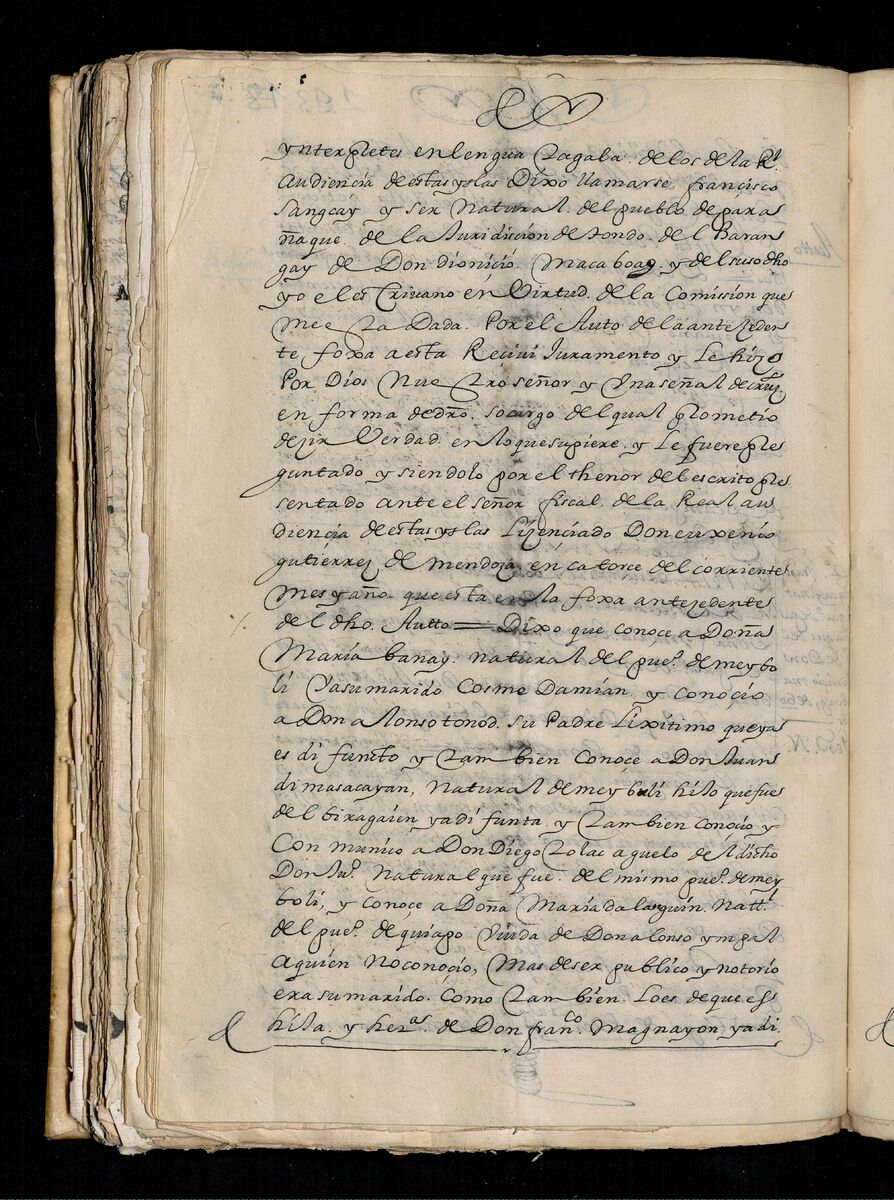 ynterpletes en lengua tagala. de los de la Rl
Audiencia de estas yslas Dixo llamarse francisco
Sangcay y ser Natural. del pueblo de para
ñaque. de la Juridicion de tondo. de l Baran
gay de Don dionicio. Macaboag. y del susodho
yo el es Crivano en Virtud. de la Comission que
me esta Dada. Por el Auto de la anteseden
te foxa a esta Recivi Juramento y Le hizo
Por Dios Nuestro señor y Una señal de cruz
en forma de dro. socargo del qual prometio
dezir Verdad. en lo que supiere. y Le fuere pre
guntado y siendolo por el thenor del escrito pre
sentado ante el señor fiscal. de la Real au
diencia de estas yslas Lizenciado Don euxenio
gutierrez de mendoza en catorce del corriente
mes y año. que esta en la foxa antezedente
del dho. Autto = Dixo que conoçe a Doña
María banay. natural del pueo. de meybo
li Y a su marido Cosme Damian y conoçio
a Don alonso tonod. su Padre Lixitimo que ya
es di functo y tambien Conoçe a Don Juan
dimasacayan, Natural de meyboli hijo que fue
del biragaien ya di funta. y tambien conoçio y
Con munico a Don Diego tolac aguelo del dicho
Don Juo. Natural que fue. del mismo pueo. de mey
boli, y conoce a Doña María dalaguin. Natt.l
del pueo. de quiapo Viuda de Don alonso ympal
a quien No conoçio, Mas de ser publico y notorio
era su marido. Como tambien. Lo es de que es
hija. y heras. de Don franco. Magnayon ya di